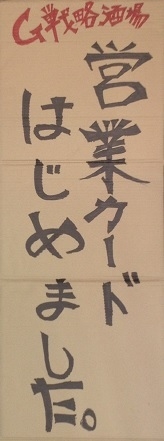 G戦略酒場
営業カード
はじめました。